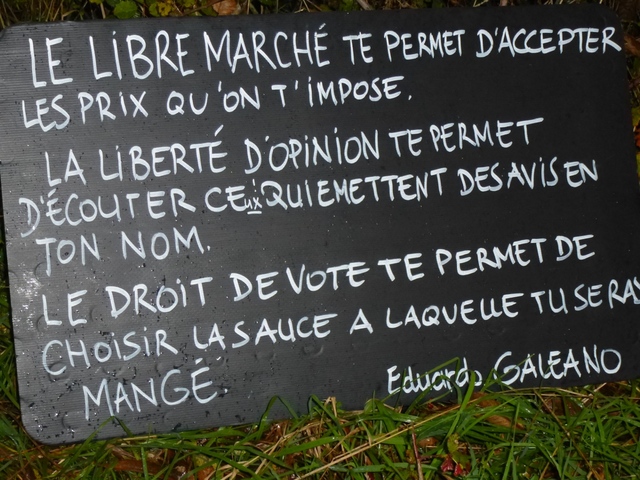 LE LIBRE MARCHÉ TE PERMET D'ACCEPTER
LES PRIX QU'ON T'IMPOSE.
LA LIBERTÉ D'OPINION TE PERMET
D'ÉCOUTER CEux QUI EMETTENT DES AVIS EN
TON NOM.
LE DROIT DE VOTE TE PERMET DE
CHOISIR LA SAUCE A LAQUELLE TU SERAS
MANGÉ
Eduardo GALEANO